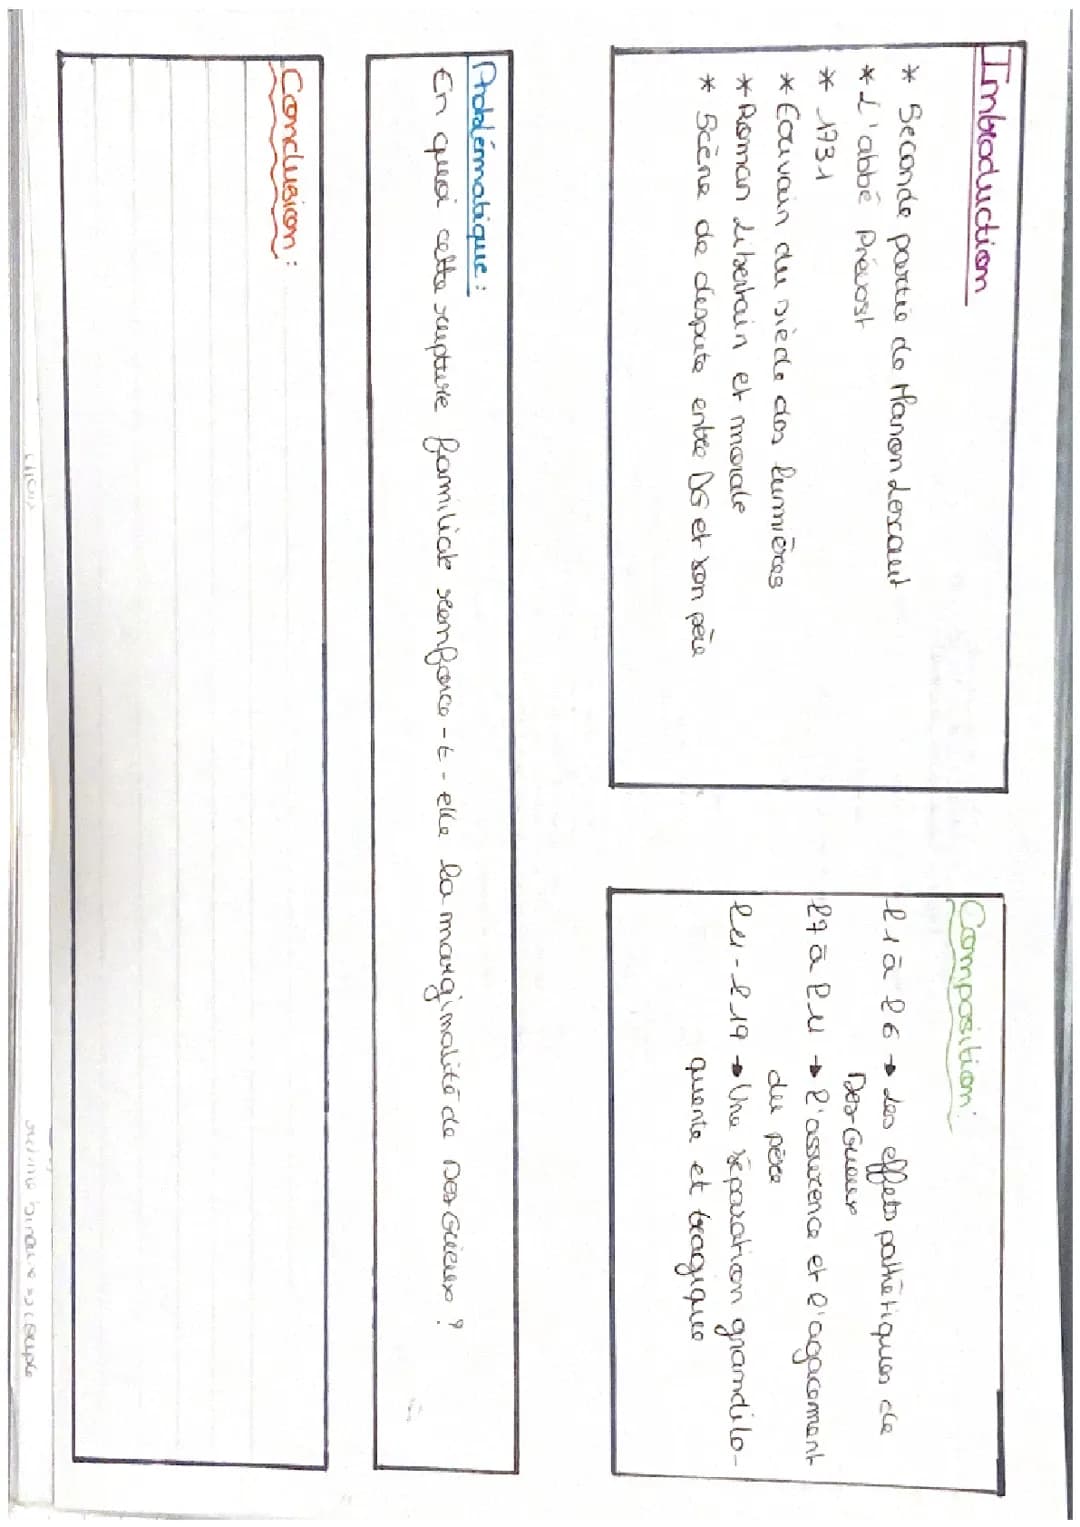 Introduction
* Seconde partie de Manon Lescaut
* L'abbé Prévost
* 1731
* Ecrivain du siècle des lumières
* Roman Libertain et morale
* Scène de despute entre DG et son père
Composition:
l1 à l6 → Les effets pathétiques de
Des Grieux
l7 à l11 → l'assurence et l'agacement
du père
l11-l19 → Une séparation grandilo-
quente et tragique
Problématique:
En quoi cette rupture familiale renforce-t-elle la marginalité de Des Grieux ?
Conclusion: